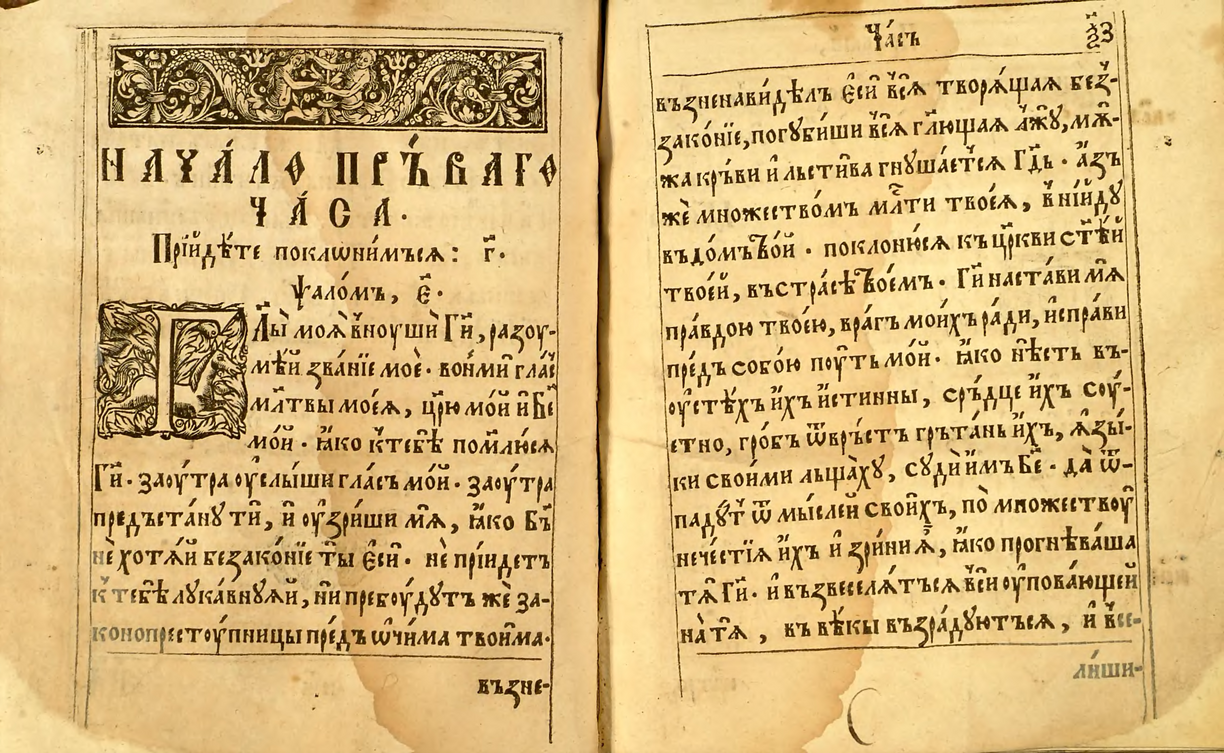 НАЧА́ЛО ПРЪ́ВАГО
ЧА́СА.
Прїйдѣ́те поклѡни́мъсѧ: г҃.
Ѱало́мъ, є҃.
Глы̀ моѧ̀ внꙋшѝ Гѝ, разоу-
мѣ́й зва́нїе моѐ· вонмѝ гла́с
млт҃вы моеѧ̀, цр҃ю мо́й ѝ Бж҃е
мо́й· ꙗ́ко к̾тебѣ̀ помлю́сѧ
Гѝ· заоу́тра оуслы́ши гла́съ мо́й· заоу́тра
предъста́нꙋ тѝ, ѝ оу҆́зриши мѧ̀, ꙗ́ко Бъ҃
не̏ хотѧ́й безако́нїе ты̏ єсѝ· не̏ прїи́детъ
к̾ тебѣ̀ лꙋка́внꙋѧй, нѝ пребоу́дꙋтъ же̏ за-
конопрестоу́пницы пре́дъ ѡчи́ма твои́ма·
възне-
Ча́съ
възненави́дѣлъ єсѝ всѧ̀ творѧ́щаѧ без̾-
зако́нїе, погꙋби́ши всѧ̀ глю́щаѧ лжꙋ̀, мѫ̀-
жа кръ́ви ѝ льсти́ва гнꙋша́етсѧ Гд҃ь· а́зъ
же̏ мно́жеством млт҃и твоеѧ̀, вни́йдꙋ
въ до́мъ Тво́й· поклоню́сѧ къ цр҃кви ст҃ѣ́й
твое́й, въ стра́сѣ Твое́мъ· Гѝ наста́ви мѧ̀
пра́вдою твое́ю, вра́гъ мои́хъ ра́ди, и́справи
пре́дъ собо́ю поу́ть мо́й· ꙗ́ко нѣ́сть въ-
оу́стѣхъ и́хъ и́стинны, сръ́дце и́хъ соу́-
етно, гро́бъ ѿвръ́стъ грьта́нь и́хъ, ѧ҆зы́-
ки свои́ми льща̀хꙋ, сꙋдѝ и́мъ Бж҃е· да̀ ѿ-
падꙋ́т ѿ мы́слей свои́хъ, по̀ мно́жествоу
нече́стїѧ и́хъ ѝ зрини́ ѧ҆̀, ꙗ́ко прогнѣ́ваша
тѧ̀ Гѝ· ѝ възвеселѧ́тъсѧ всѝ оупова́ющей
на̀ тѧ̀, въ вѣ́кы възра́дꙋютъсѧ, ѝ все-
ли́ши-